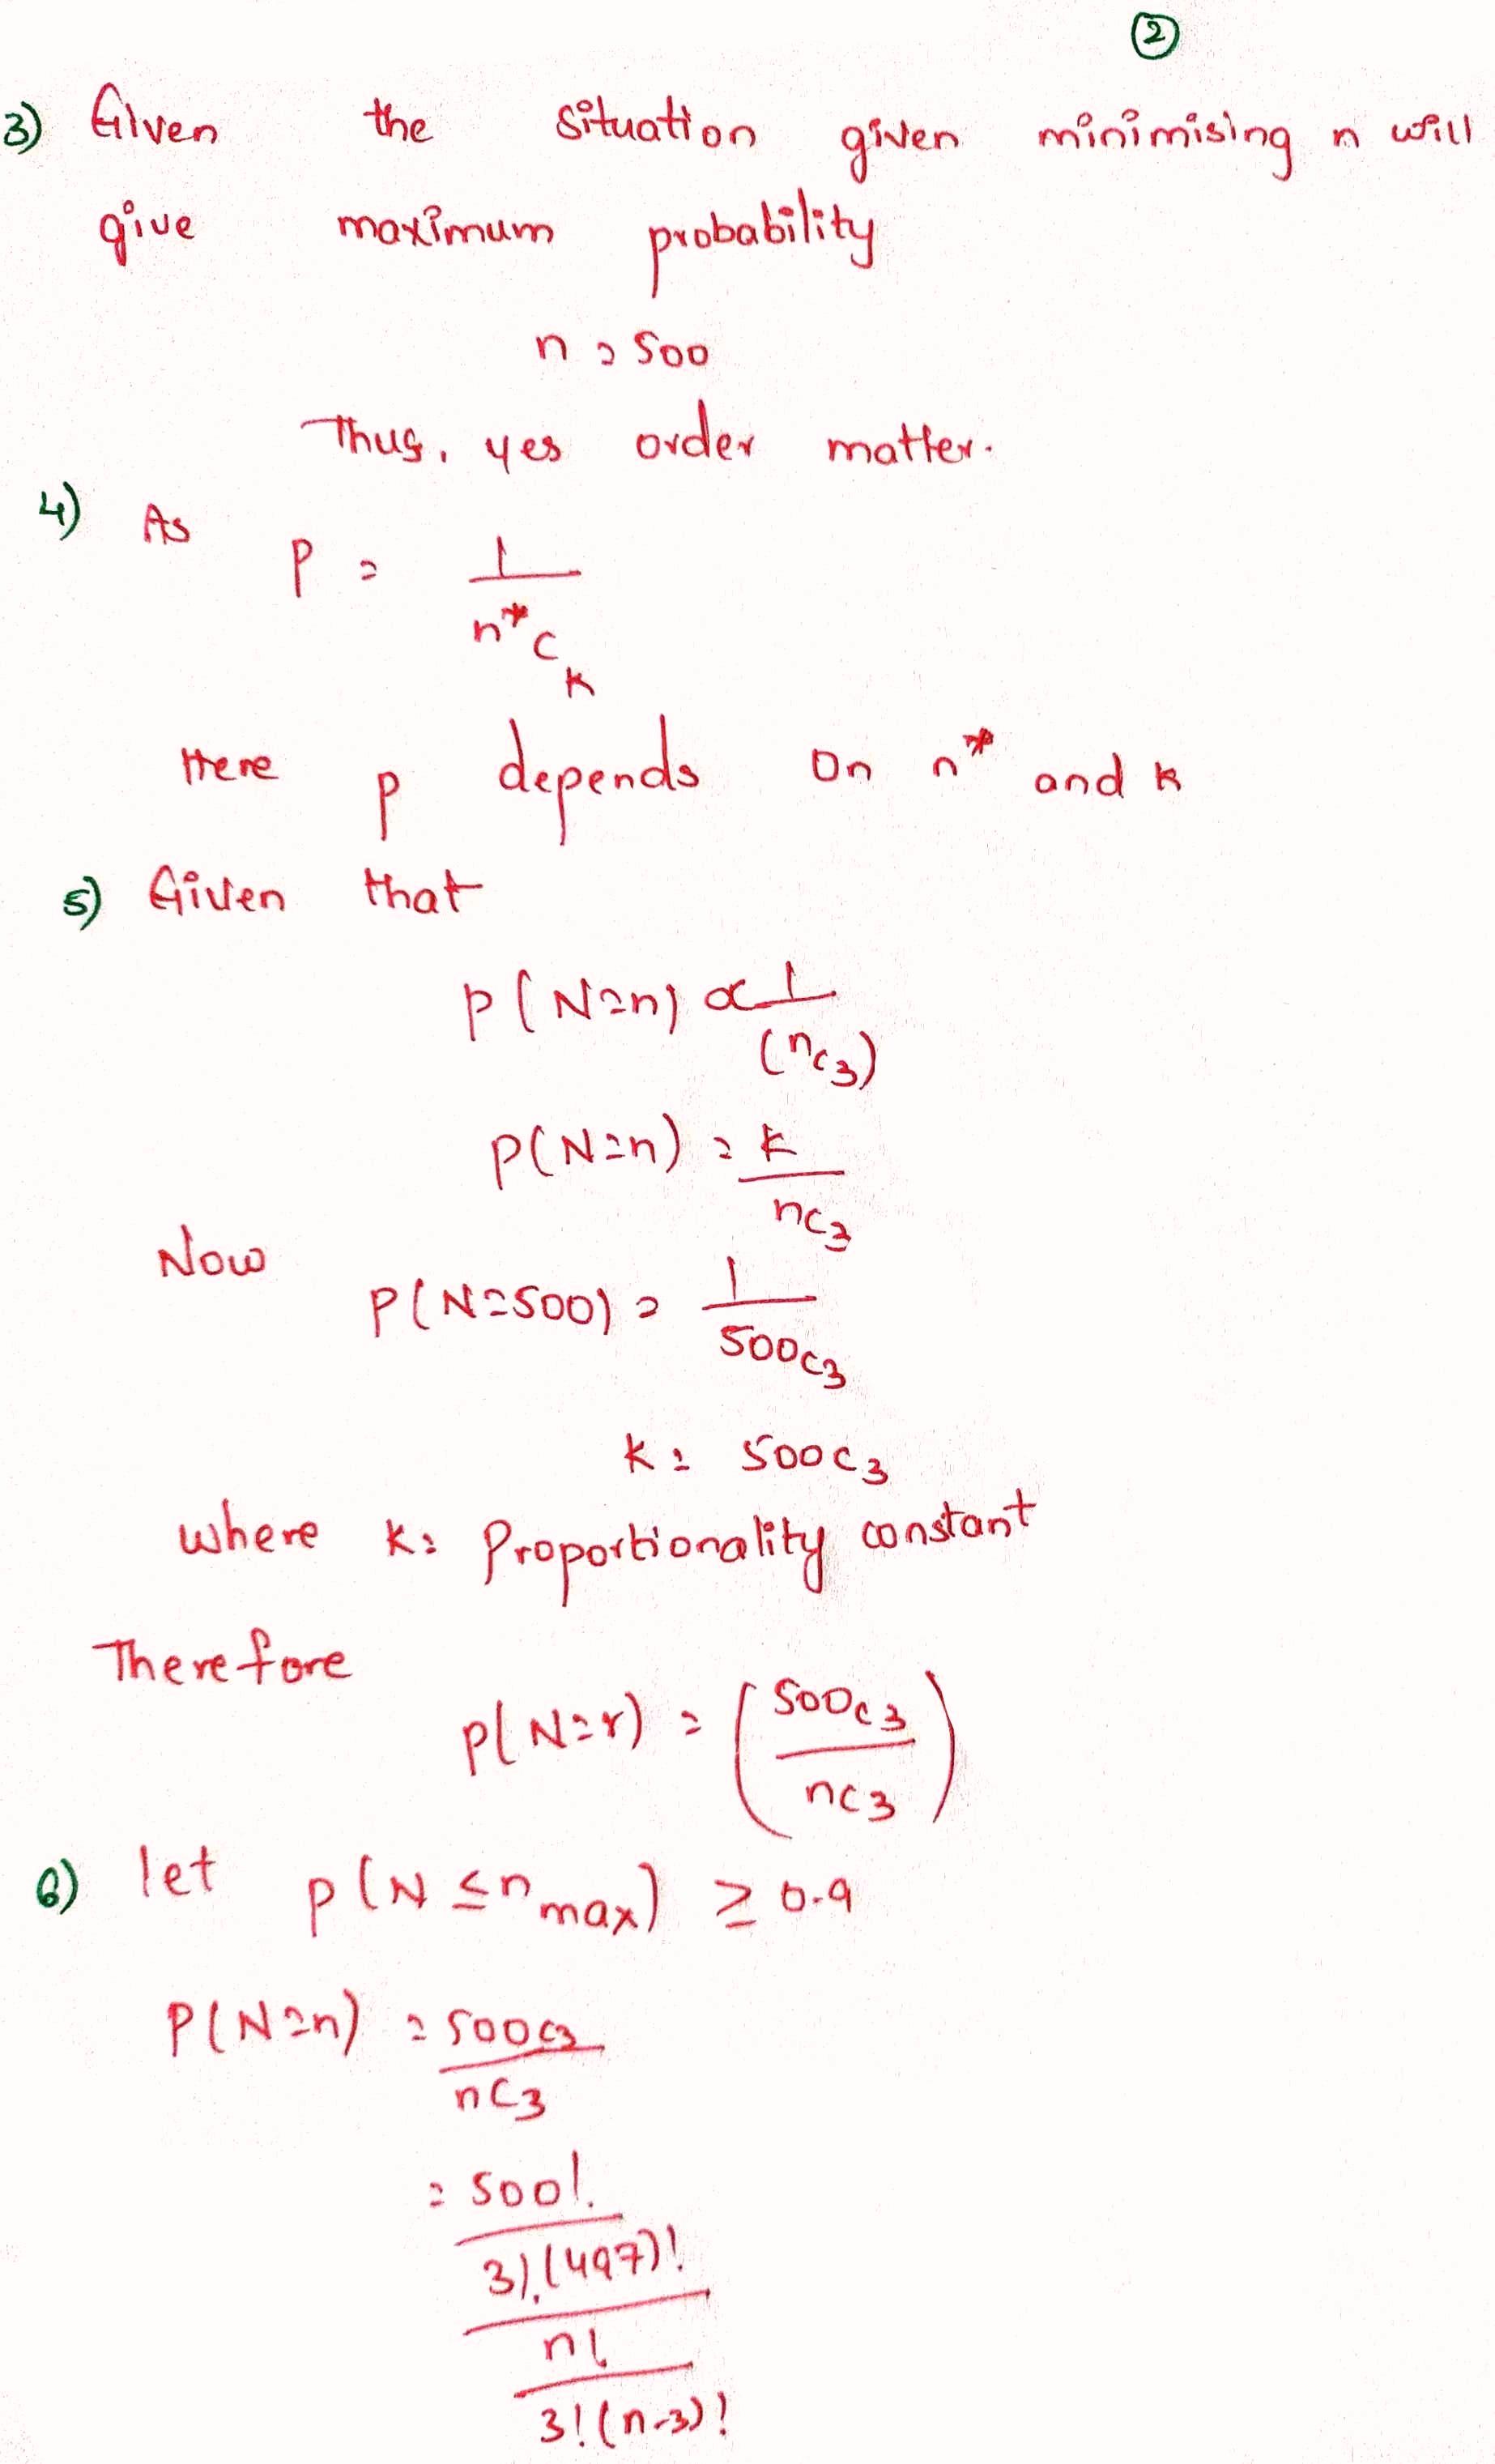 ②
3) Given the situation given minimising n will
give maximum probability
n = 500
Thus, yes order matter.
4) As P = 1 / n*C_K
Here p depends on n* and k
5) Given that
P(N=n) ∝ 1 / (nC3)
P(N=n) = k / nC3
Now P(N=500) = 1 / 500C3
k = 500C3
where k = Proportionality constant
Therefore
P(N=r) = (500C3 / nC3)
6) let P(N ≤ n max) ≥ 0.9
P(N=n) = 500C3 / nC3
= 500! / 3!.(497)! / n! / 3!(n-3)!